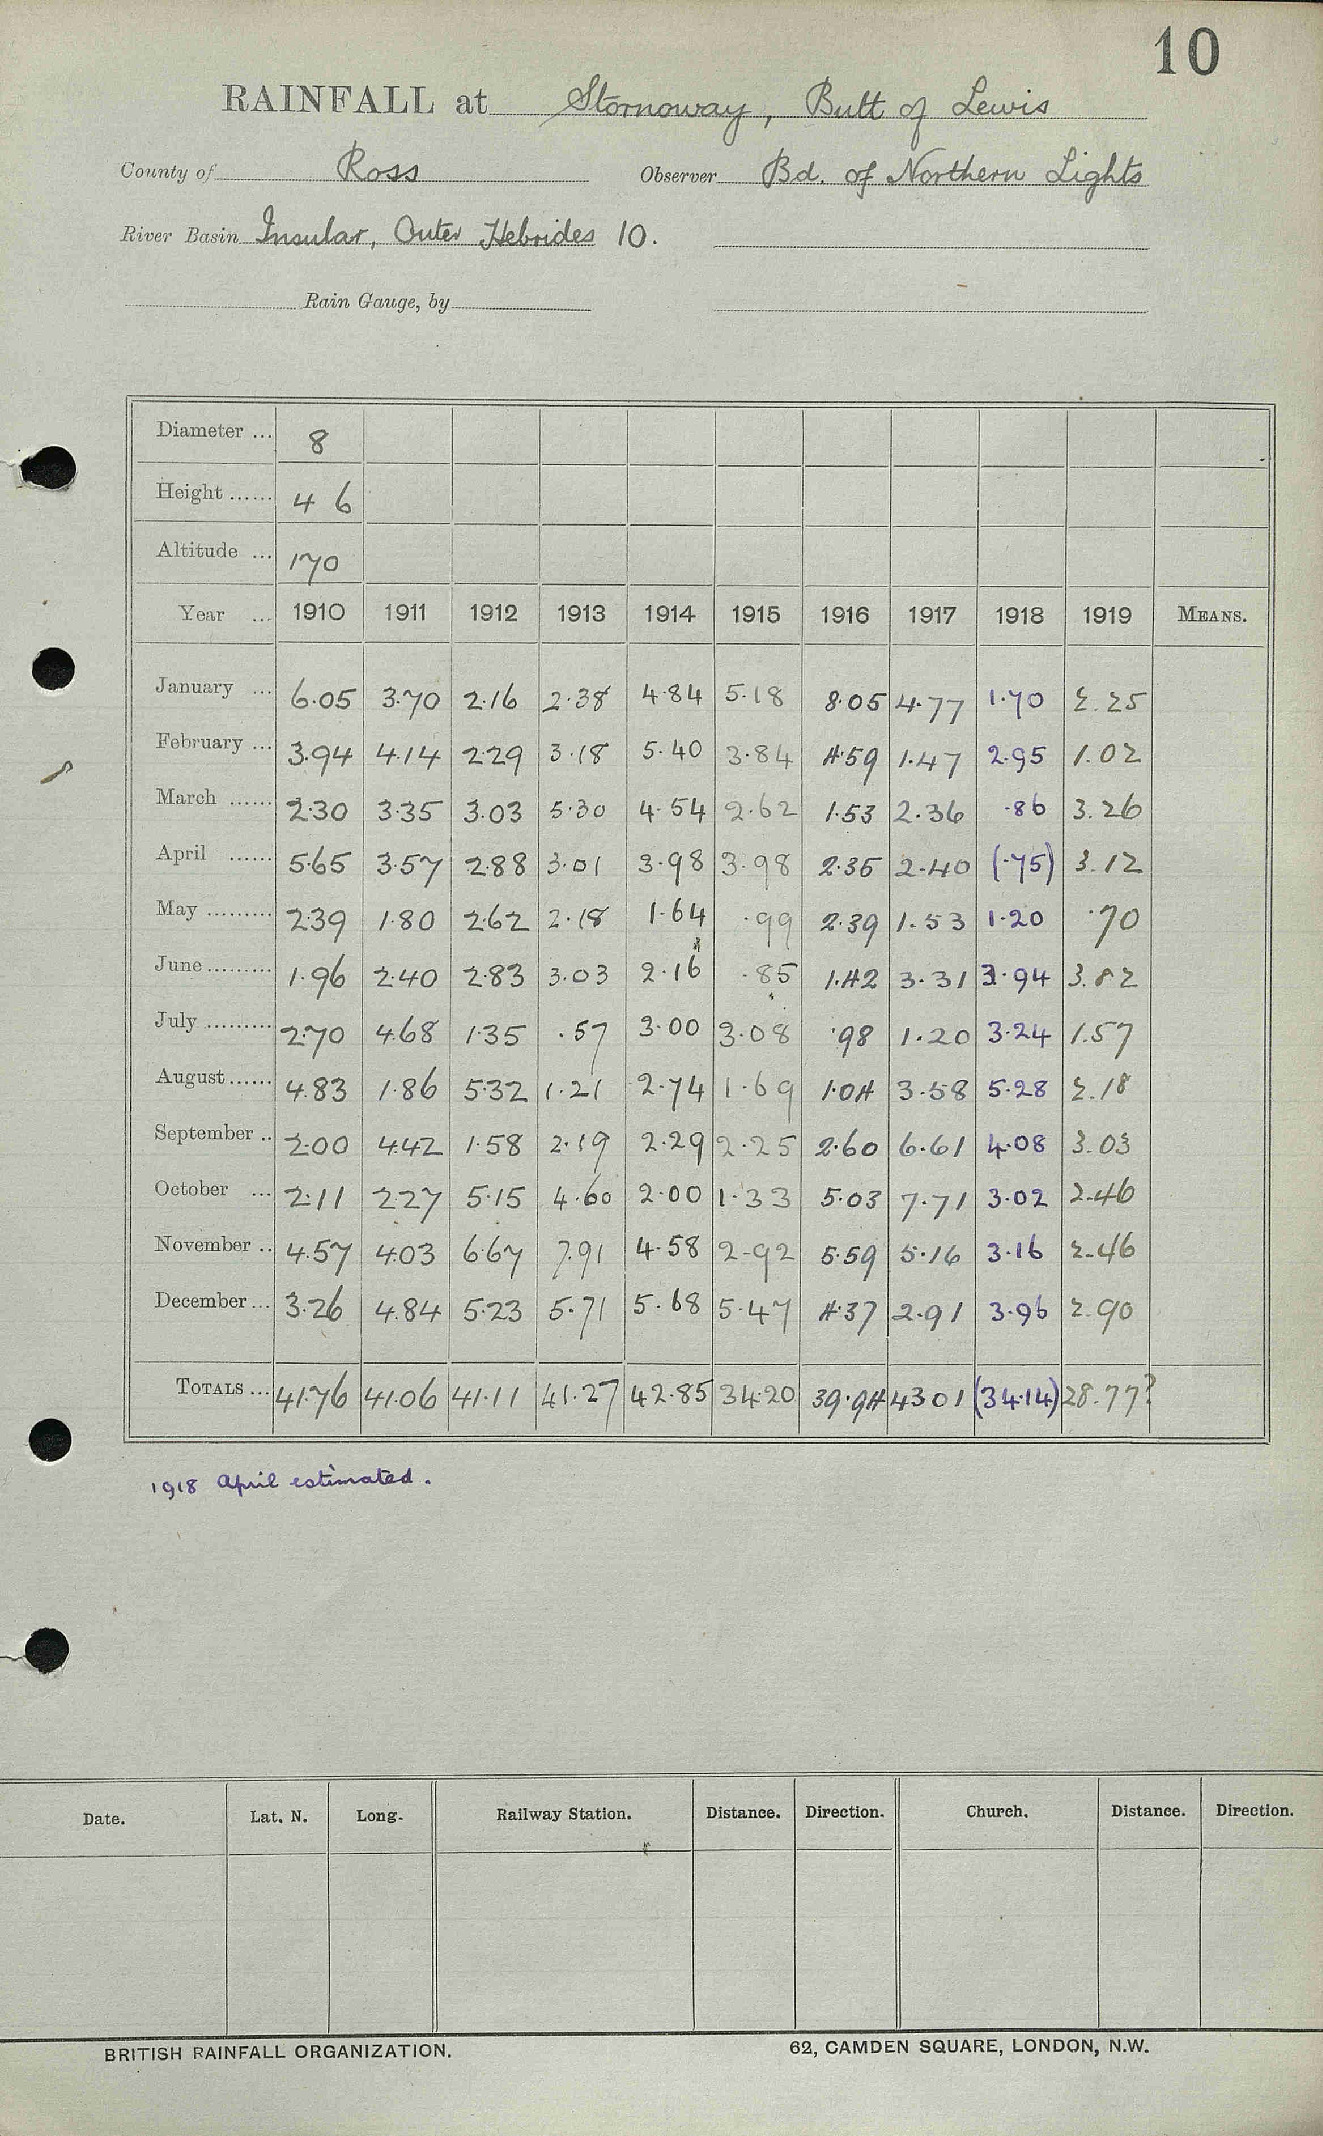 10
RAINFALL at Stornoway, Butt of Lewis
County of Ross Observer Bd. of Northern Lights
River Basin Insular, Outer Hebrides 10.
Rain Gauge, by
Diameter ... 8
Height ...... 4 6
Altitude ... 170
Year ... 1910 1911 1912 1913 1914 1915 1916 1917 1918 1919 MEANS.
January ... 6.05 3.70 2.16 2.38 4.84 5.18 8.05 4.77 1.70 2.25
February ... 3.94 4.14 2.29 3.18 5.40 3.84 4.59 1.47 2.95 1.02
March ...... 2.30 3.35 3.03 5.30 4.54 2.62 1.53 2.36 .86 3.26
April ...... 5.65 3.57 2.88 3.01 3.98 3.98 2.35 2.40 (.75) 3.12
May ......... 2.39 1.80 2.62 2.18 1.64 .99 2.39 1.53 1.20 .70
June ......... 1.96 2.40 2.83 3.03 2.16 .85 1.42 3.31 3.94 3.82
July ......... 2.70 4.68 1.35 .57 3.00 3.08 .98 1.20 3.24 1.57
August ...... 4.83 1.86 5.32 1.21 2.74 1.69 1.04 3.58 5.28 2.18
September .. 2.00 4.42 1.58 2.19 2.29 2.25 2.60 6.61 4.08 3.03
October ... 2.11 2.27 5.15 4.60 2.00 1.33 5.03 7.71 3.02 2.46
November .. 4.57 4.03 6.67 7.91 4.58 2.92 5.59 5.16 3.16 2.46
December ... 3.26 4.84 5.23 5.71 5.68 5.47 4.37 2.91 3.96 2.90
TOTALS ... 41.76 41.06 41.11 41.27 42.85 34.20 39.94 43.01 (34.14) 28.77?
1918 April estimated.
Date. Lat. N. Long. Railway Station. Distance. Direction. Church. Distance. Direction.
BRITISH RAINFALL ORGANIZATION. 62, CAMDEN SQUARE, LONDON, N.W.